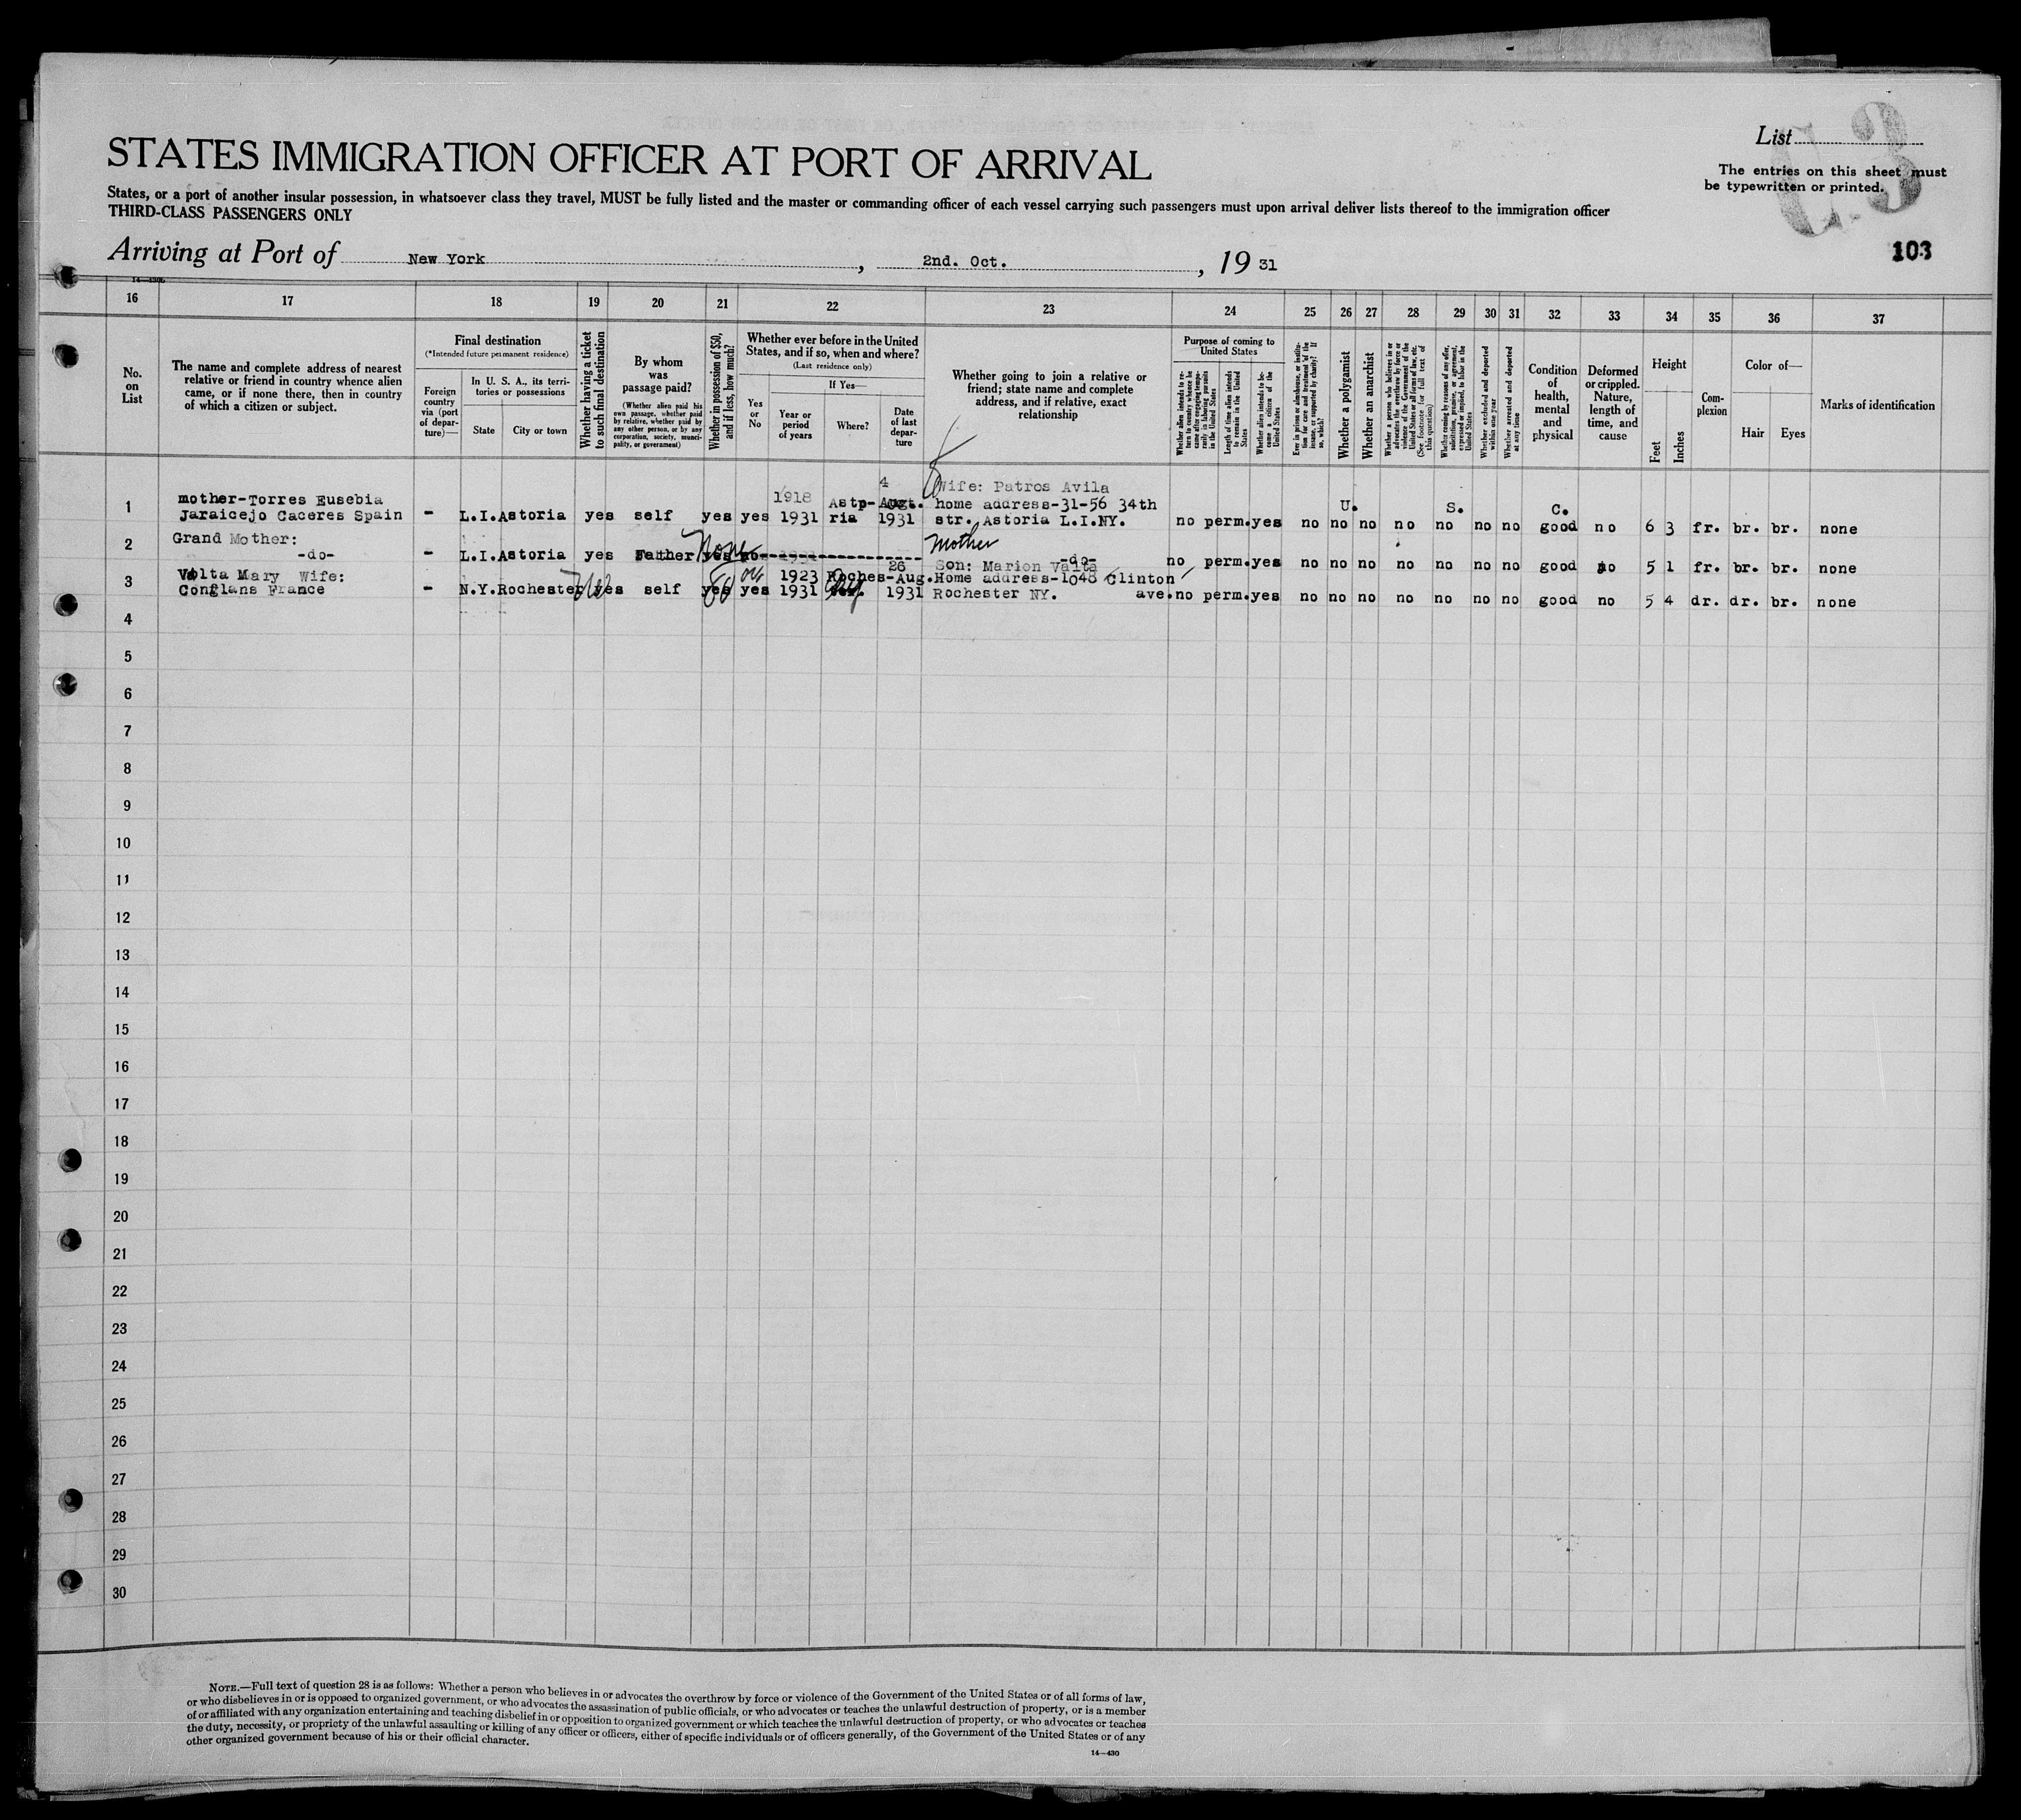 List
STATES IMMIGRATION OFFICER AT PORT OF ARRIVAL
The entries on this sheet must
be typewritten or printed.
States, or a port of another insular possession, in whatsoever class they travel, MUST be fully listed and the master or commanding officer of each vessel carrying such passengers must upon arrival deliver lists thereof to the immigration officer
THIRD-CLASS PASSENGERS ONLY
103
Arriving at Port of New York, 2nd. Oct., 19 31
16 17 18 19 20 21 22 23 24 25 26 27 28 29 30 31 32 33 34 35 36 37
No. on List
The name and complete address of nearest relative or friend in country whence alien came, or if none there, then in country of which a citizen or subject.
Final destination
(*Intended future permanent residence)
Foreign country via (port of departure)—
In U. S. A., its territories or possessions
State
City or town
Whether having a ticket to such final destination
By whom was passage paid?
(Whether alien paid his own passage, whether paid by relative, whether paid by any other person, or by any corporation, society, municipality, or government)
Whether in possession of $50, and if less, how much?
Whether ever before in the United States, and if so, when and where?
(Last residence only)
Yes or No
If Yes—
Year or period of years
Where?
Date of last departure
Whether going to join a relative or friend; state name and complete address, and if relative, exact relationship
Purpose of coming to United States
Whether alien intends to return to country whence he came after engaging temporarily in laboring pursuits in the United States
Length of time alien intends to remain in the United States
Whether alien intends to become a citizen of the United States
Ever in prison or almshouse, or institution for care and treatment of the insane, or supported by charity? If so, which?
Whether a polygamist
Whether an anarchist
Whether a person who believes in or advocates the overthrow by force or violence of the Government of the United States or all forms of law, etc. (See footnote for full text of this question)
Whether coming by reasons of any offer, solicitation, promise, or agreement, expressed or implied, to labor in the United States
Whether excluded and deported within one year
Whether arrested and deported at any time
Condition of health, mental and physical
Deformed or crippled. Nature, length of time, and cause
Height
Feet
Inches
Complexion
Color of—
Hair
Eyes
Marks of identification
4 Wife: Patros Avila
1 mother-Torres Eusebia 1918 Astp- Augt. home address-31-56 34th U. S. C.
Jaraicejo Caceres Spain - L.I. Astoria yes self yes yes 1931 ria 1931 str. Astoria L.I.NY. no perm. yes no no no no no no no good no 6 3 fr. br. br. none
2 Grand Mother: None Mother
-do- - L.I. Astoria yes Father yes no -do- no perm. yes no no no no no no no good no 5 1 fr. br. br. none
26 Son: Marion Valta
3 Valta Mary Wife: 1923 Roches- Aug. Home address-1048 Clinton
Conflans France - N.Y. Rochester yes self yes yes 1931 1931 Rochester NY. ave. no perm. yes no no no no no no no good no 5 4 dr. dr. br. none
4
5
6
7
8
9
10
11
12
13
14
15
16
17
18
19
20
21
22
23
24
25
26
27
28
29
30
NOTE.—Full text of question 28 is as follows: Whether a person who believes in or advocates the overthrow by force or violence of the Government of the United States or of all forms of law,
or who disbelieves in or is opposed to organized government, or who advocates the assassination of public officials, or who advocates or teaches the unlawful destruction of property, or is a member
of or affiliated with any organization entertaining and teaching disbelief in or opposition to organized government or which teaches the unlawful destruction of property, or who advocates or teaches
the duty, necessity, or propriety of the unlawful assaulting or killing of any officer or officers, either of specific individuals or of officers generally, of the Government of the United States or of any
other organized government because of his or their official character.
14—430